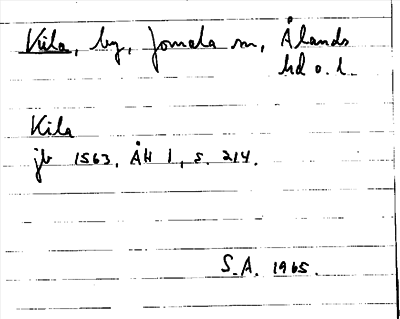 Kila, by, Jomala sn, Ålands
hd o. l.
Kila
jb 1563. ÅH 1, s. 214.
S.A. 1965.